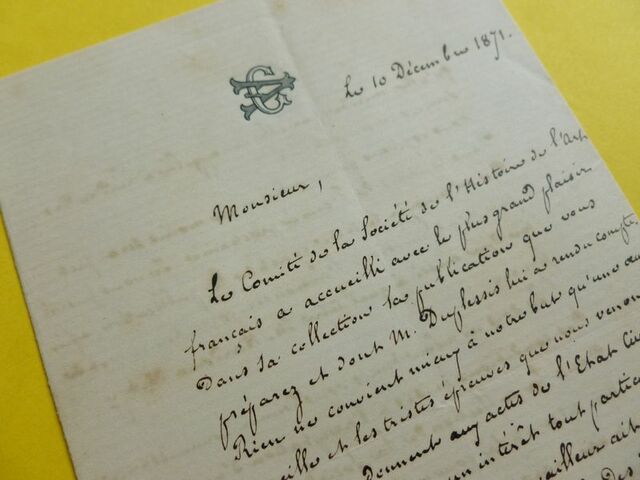 Le 10 Décembre 1871.
Monsieur,
Le Comité de la Société de l'Histoire de l'Art
français a accueilli avec le plus grand plaisir
dans sa collection la publication que vous
préparez et dont M. Duplessis lui a rendu compte.
Rien ne convient mieux à notre but qu'une
et les tristes épreuves que nous
donnent aux actes de l'Etat
un intérêt tout
ait
Des